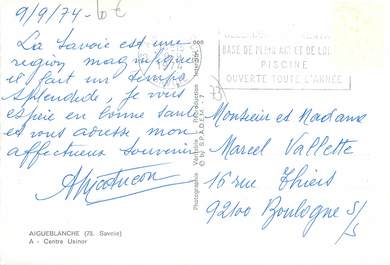 9/9/74
10 €
La Savoie est une
région magnifique
il fait un temps
splendide, je vous
espère en bonne santé
et vous adresse mon
affectueux souvenir
AIGUEBLANCHE (73. Savoie)
A - Centre Usinor
BASE DE PLEIN AIR ET DE LOI
PISCINE
OUVERTE TOUTE L'ANNÉE
73
© by S.P.A.D.E.M. - 7
Monsieur et Madame
Marcel Vallette
16 rue Thiers
92100 Boulogne s/s